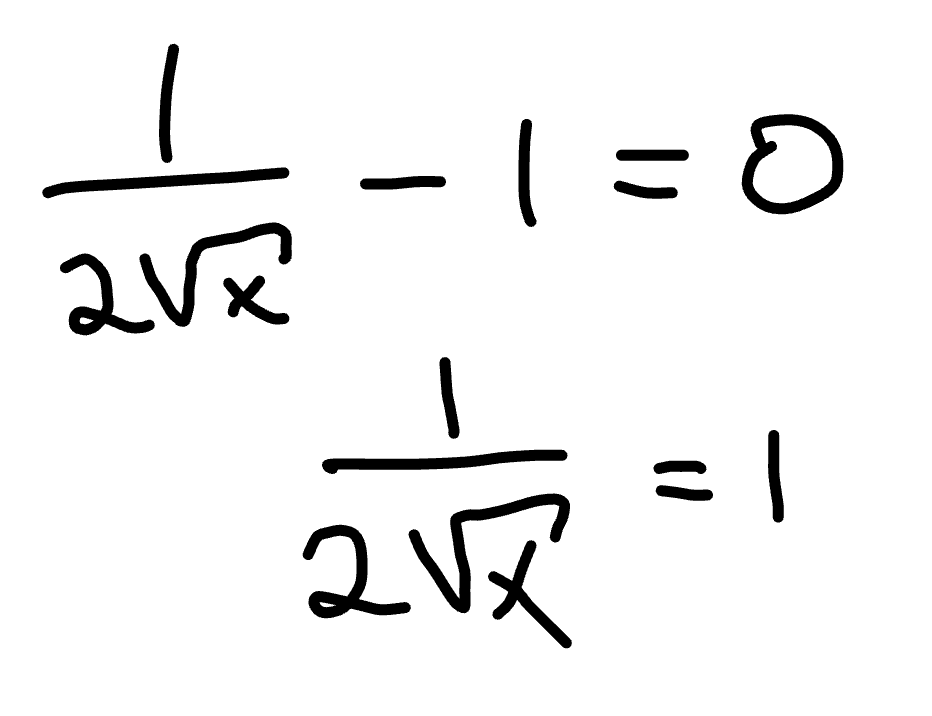 \frac{1}{2\sqrt{x}} - 1 = 0
\frac{1}{2\sqrt{x}} = 1